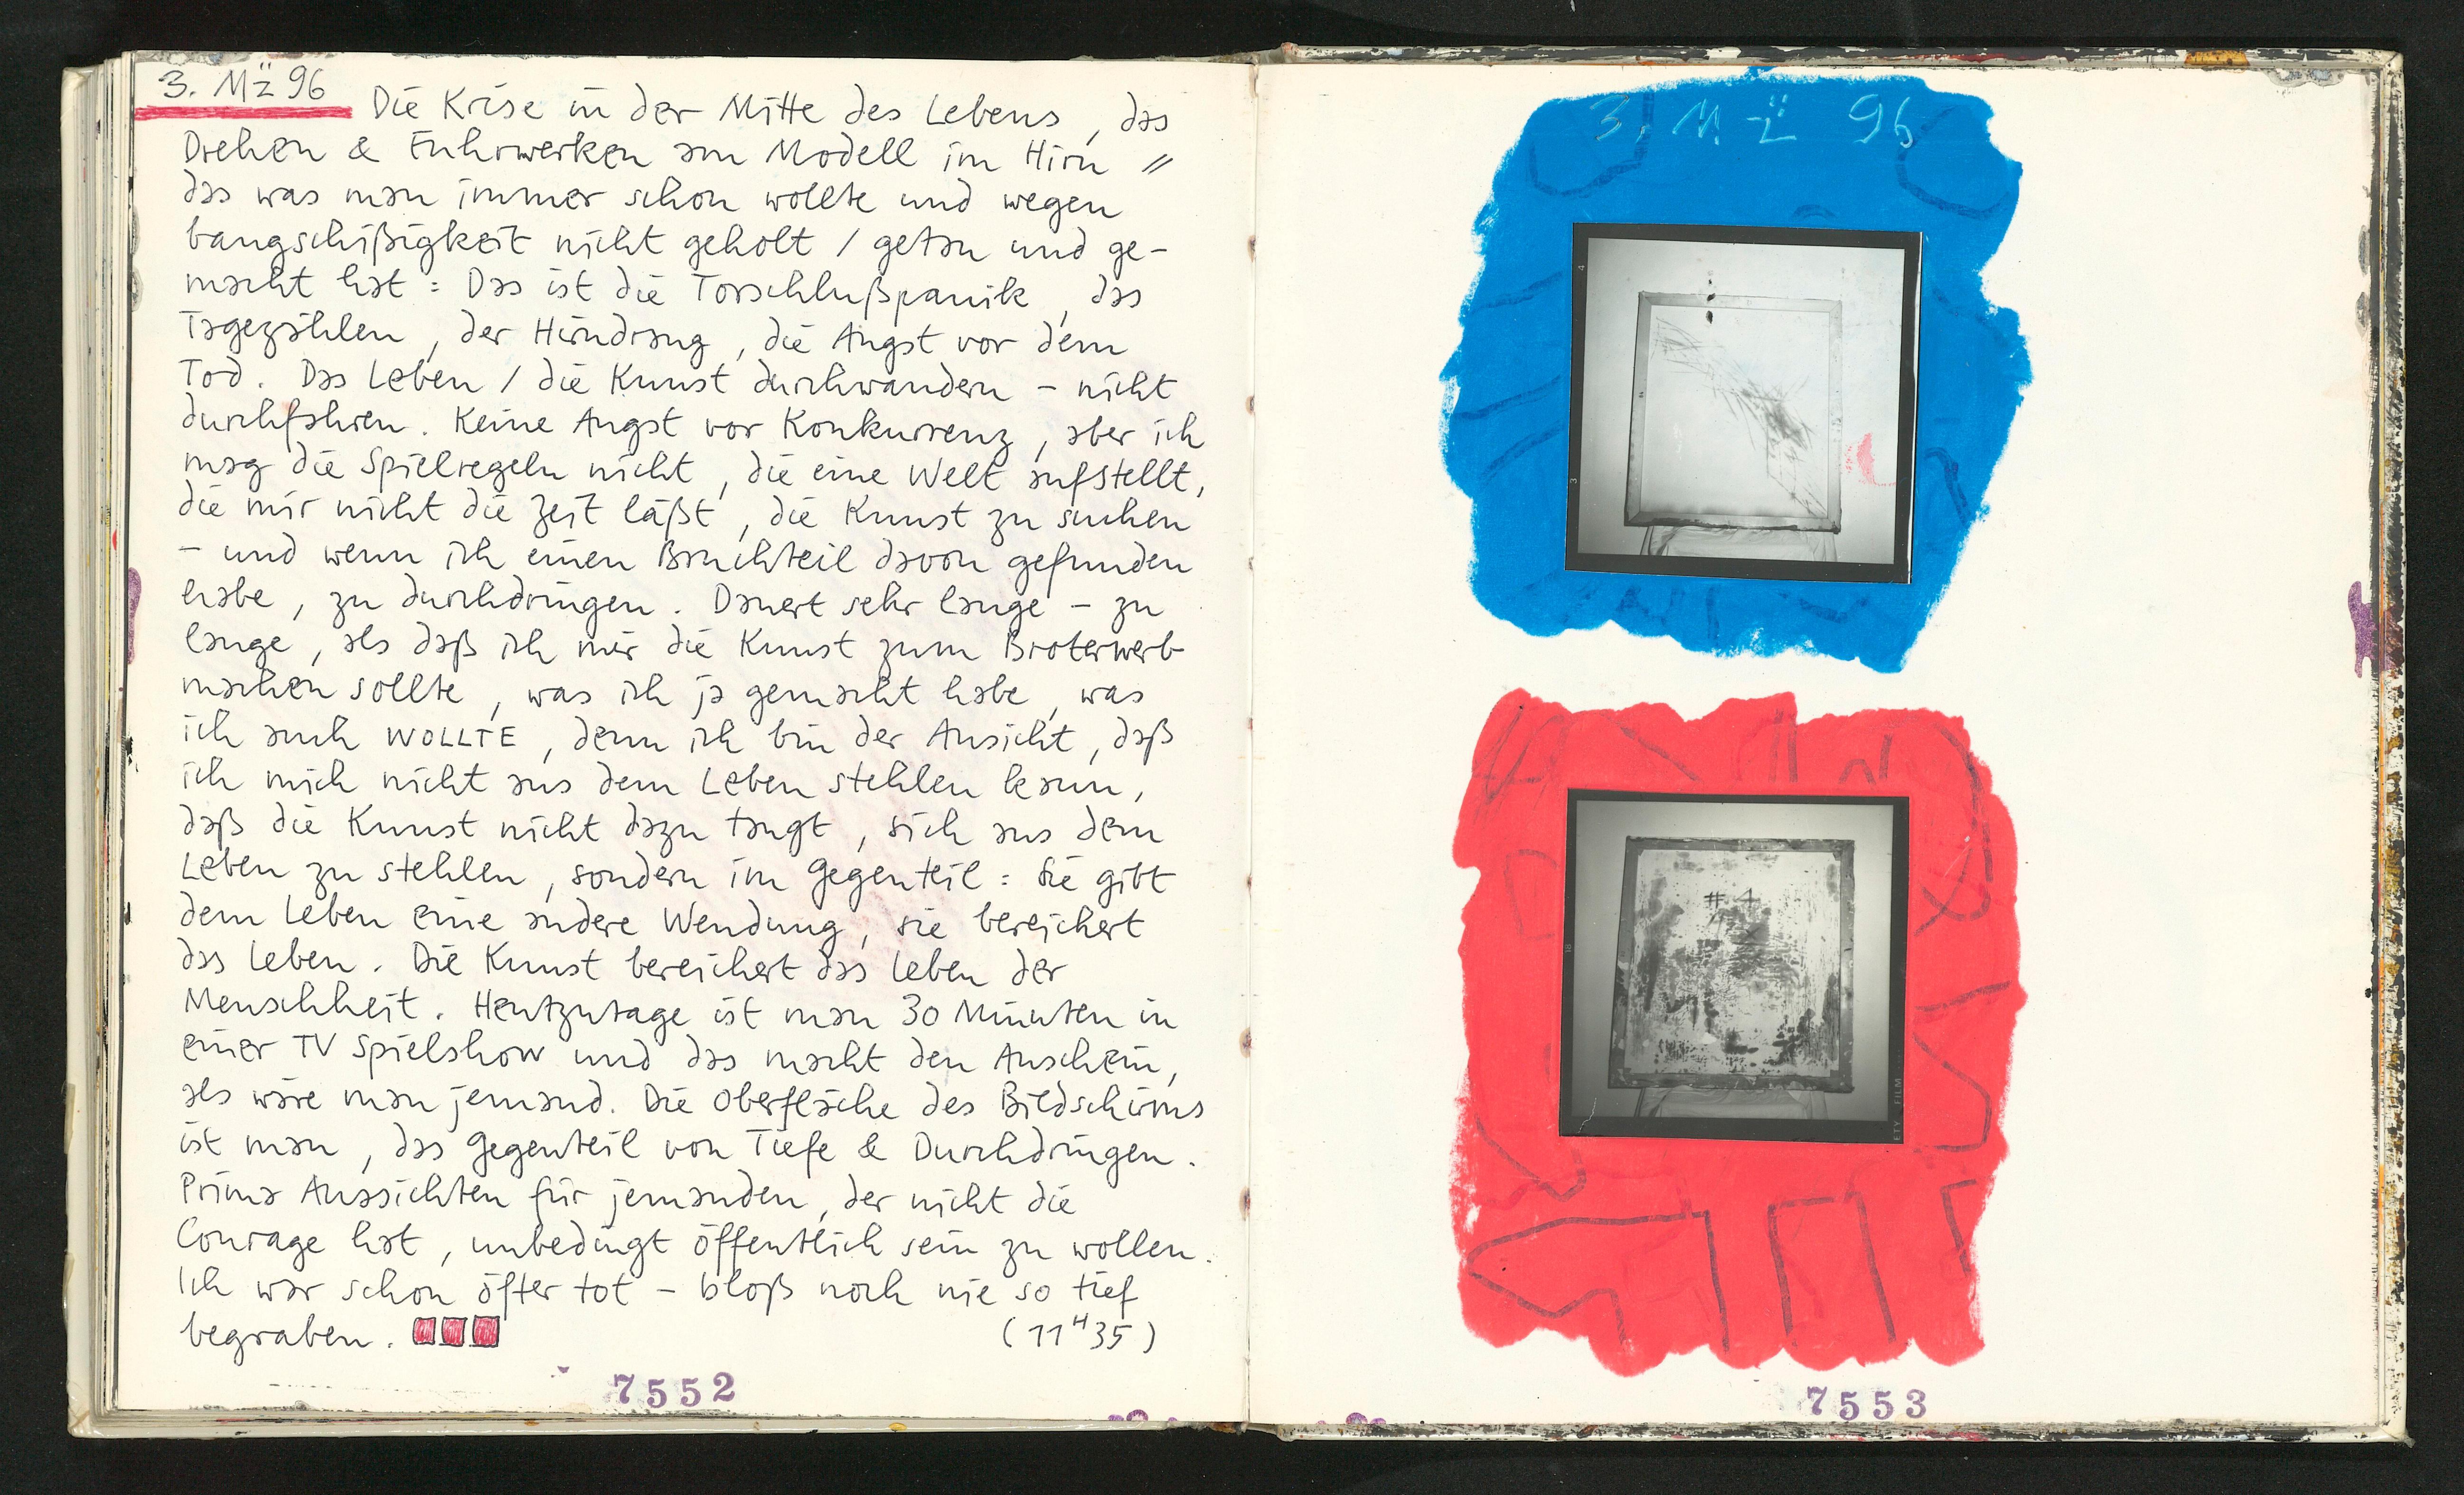 3. MÄ 96
Die Krise in der Mitte des Lebens, das
Drehen & Fuhrwerken am Modell im Hirn //
das was man immer schon wollte und wegen
bangschißigkeit nicht geholt / getan und ge-
macht hat : Das ist die Torschlußpanik, das
Tagezählen, der Hirndrang, die Angst vor dem
Tod. Das Leben / die Kunst durchwandern – nicht
durchfahren. Keine Angst vor Konkurrenz, aber ich
mag die Spielregeln nicht, die eine Welt aufstellt,
die mir nicht die Zeit läßt, die Kunst zu suchen
– und wenn ich einen Bruchteil davon gefunden
habe, zu durchdringen. Dauert sehr lange – zu
lange, als daß ich mir die Kunst zum Broterwerb
machen sollte, was ich ja gemacht habe, was
ich auch WOLLTE, denn ich bin der Ansicht, daß
ich mich nicht aus dem Leben stehlen kann,
daß die Kunst nicht dazu taugt, sich aus dem
Leben zu stehlen, sondern im Gegenteil : Sie gibt
dem Leben eine andere Wendung, sie bereichert
das Leben. Die Kunst bereichert das Leben der
Menschheit. Heutzutage ist man 30 Minuten in
einer TV Spielshow und das macht den Anschein,
als wäre man jemand. Die Oberfläche des Bildschirms
ist man, das Gegenteil von Tiefe & Durchdringen.
Prima Aussichten für jemanden, der nicht die
Courage hat, unbedingt öffentlich sein zu wollen.
Ich war schon öfter tot – bloß noch nie so tief
begraben. (11H35)
7552
3. MÄ 96
4
3
# 4
ETY FILM
7553